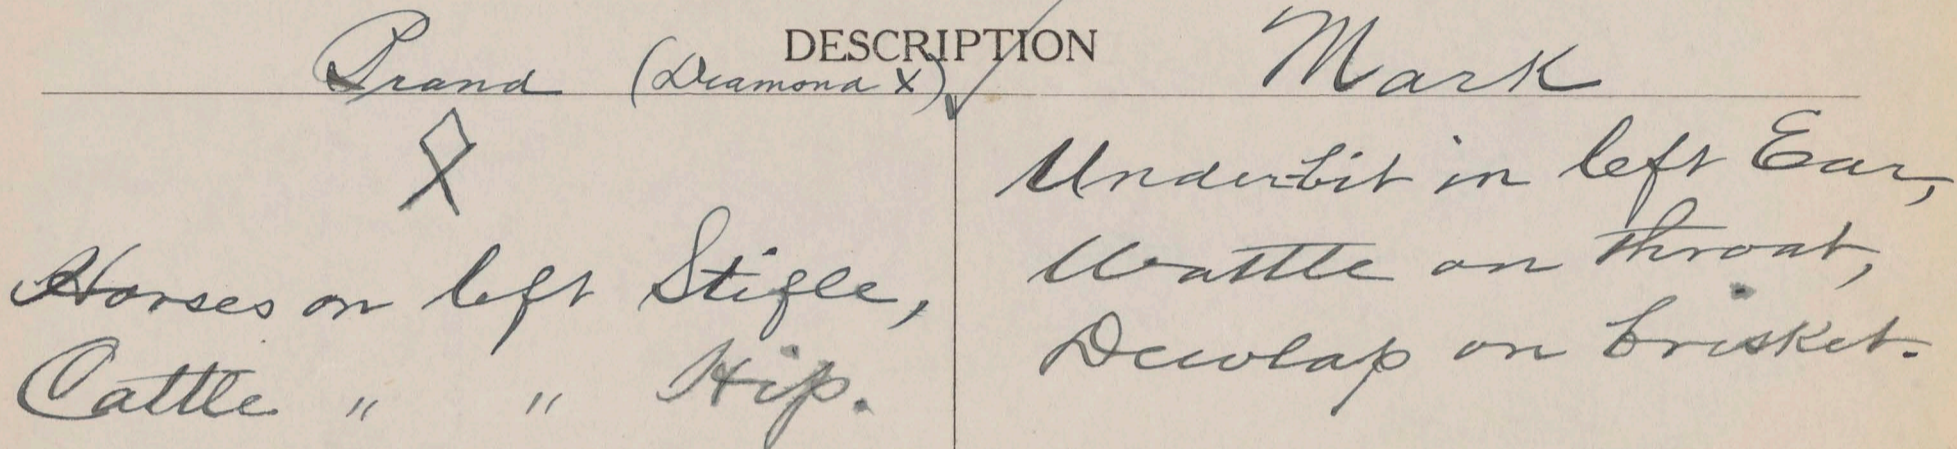 DESCRIPTION
Brand (Diamond X) Mark
Horses on left Stifle,
Cattle " " Hip.
Underbit in left Ear,
Wattle on throat,
Dewlap on brisket.